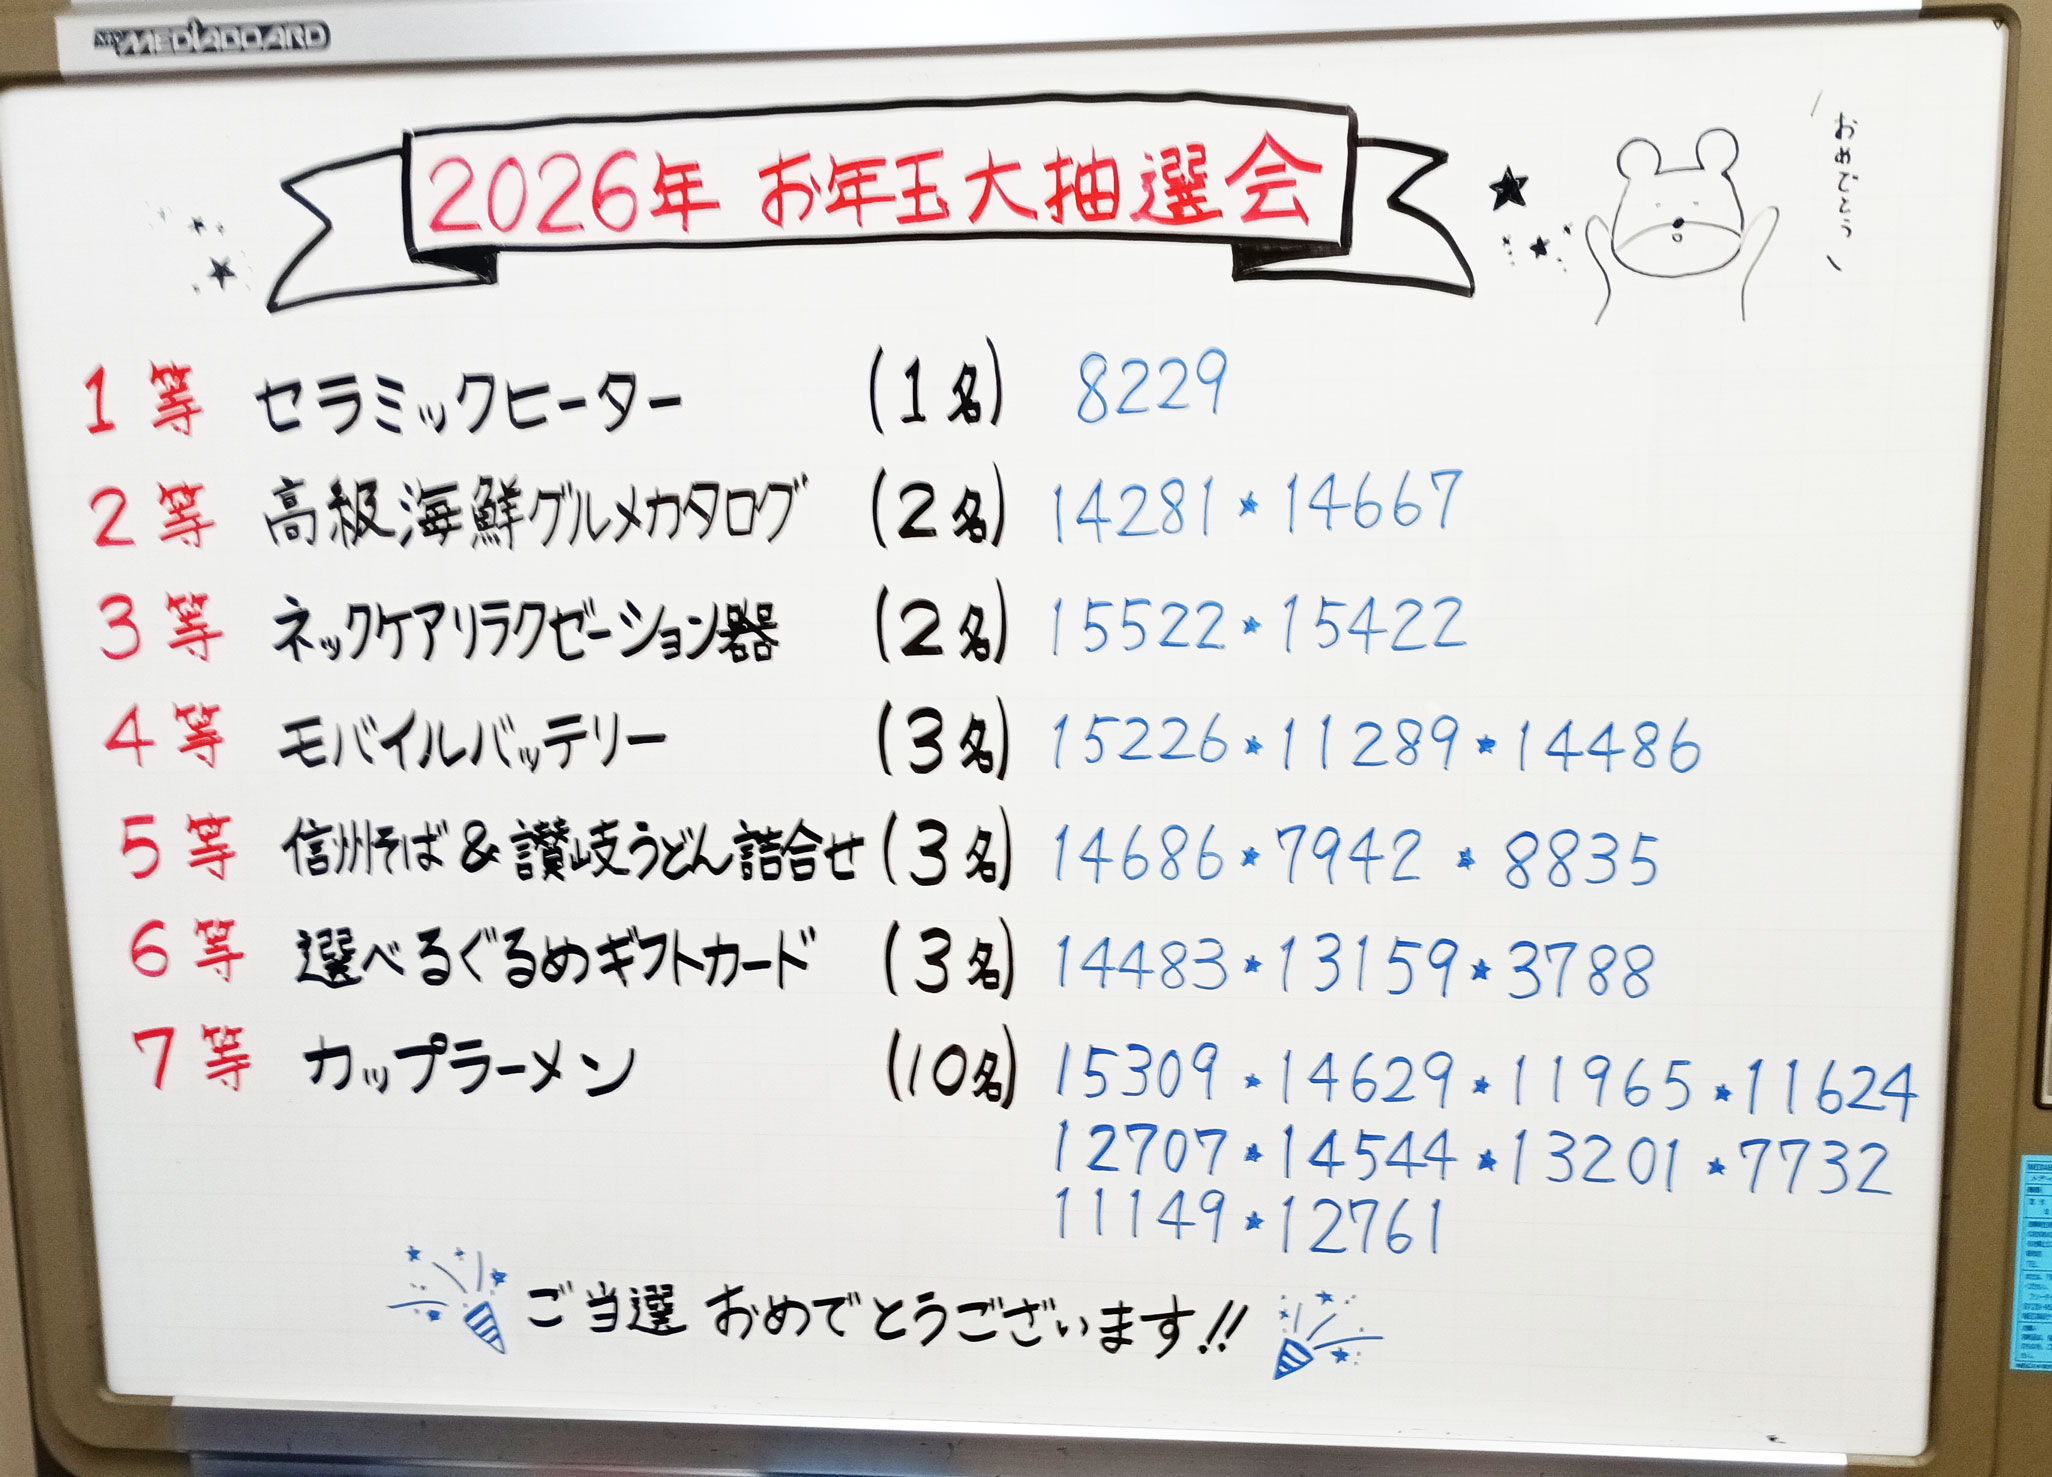 MEDIABOARD
2026年 お年玉大抽選会
おめでとう
1等 セラミックヒーター (1名) 8229
2等 高級海鮮グルメカタログ (2名) 14281★14667
3等 ネックケアリラクゼーション器 (2名) 15522★15422
4等 モバイルバッテリー (3名) 15226★11289★14486
5等 信州そば&讃岐うどん詰合せ (3名) 14686★7942★8835
6等 選べるぐるめギフトカード (3名) 14483★13159★3788
7等 カップラーメン (10名) 15309★14629★11965★11624
12707★14544★13201★7732
11149★12761
ご当選 おめでとうございます!!